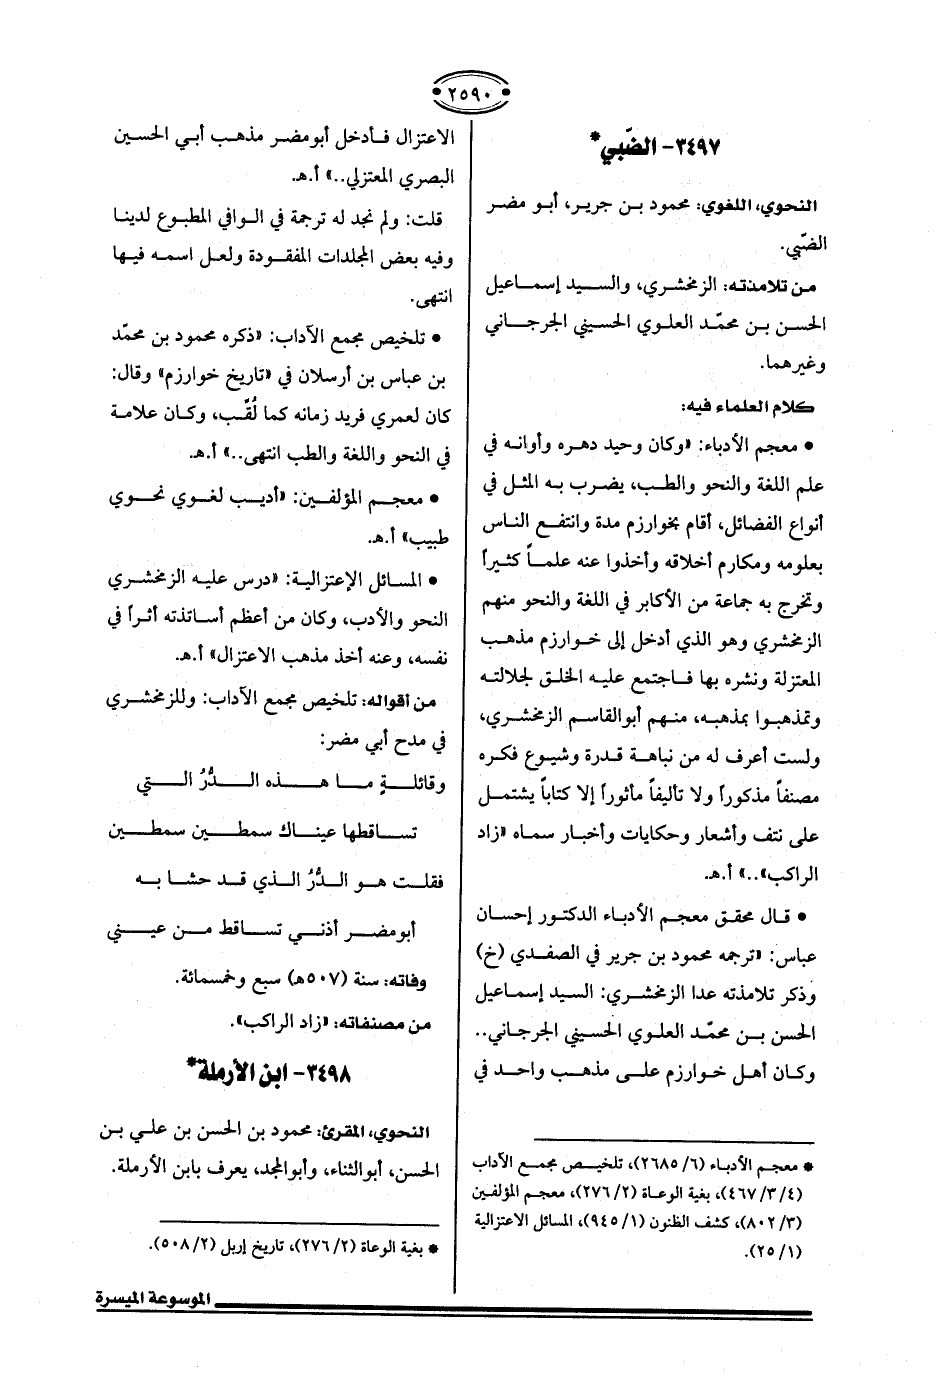 ٢٥٩٠
٣٤٩٧- الضّبي*
النحوي، اللغوي: محمود بن جرير، أبو مضر
الضّبي.
من تلامذته: الزمخشري، والسيد إسماعيل
الحسن بن محمّد العلوي الحسيني الجرجاني
وغيرهما.
كلام العلماء فيه:
• معجم الأدباء: «وكان وحيد دهره وأوانه في
علم اللغة والنحو والطب، يضرب به المثل في
أنواع الفضائل، أقام بخوارزم مدة وانتفع الناس
بعلومه ومكارم أخلاقه وأخذوا عنه علماً كثيراً
وتخرج به جماعة من الأكابر في اللغة والنحو منهم
الزمخشري وهو الذي أدخل إلى خوارزم مذهب
المعتزلة ونشره بها فاجتمع عليه الخلق لجلالته
وتمذهبوا بمذهبه، منهم أبوالقاسم الزمخشري،
ولست أعرف له من نباهة قدرة وشيوع فكره
مصنفاً مذكوراً ولا تأليفاً مأثوراً إلا كتاباً يشتمل
على نتف وأشعار وحكايات وأخبار سماه «زاد
الراكب»..» أ.هـ.
• قال محقق معجم الأدباء الدكتور إحسان
عباس: «ترجمه محمود بن جرير في الصفدي (خ)
وذكر تلامذته عدا الزمخشري: السيد إسماعيل
الحسن بن محمّد العلوي الحسيني الجرجاني..
وكان أهل خوارزم على مذهب واحد في
* معجم الأدباء (٦/ ٢٦٨٥)، تلخيص مجمع الآداب
(٤/ ٣/ ٤٦٧)، بغية الوعاة (٢/ ٢٧٦)، معجم المؤلفين
(٣/ ٨٠٢)، كشف الظنون (١/ ٩٤٥)، المسائل الاعتزالية
(١/ ٢٥).
الاعتزال فأدخل أبومضر مذهب أبي الحسين
البصري المعتزلي..» أ.هـ.
قلت: ولم نجد له ترجمة في الوافي المطبوع لدينا
وفيه بعض المجلدات المفقودة ولعل اسمه فيها
انتهى.
• تلخيص مجمع الآداب: «ذكره محمود بن محمّد
بن عباس بن أرسلان في «تاريخ خوارزم» وقال:
كان لعمري فريد زمانه كما لُقّب، وكان علامة
في النحو واللغة والطب انتهى..» أ.هـ.
• معجم المؤلفين: «أديب لغوي نحوي
طبيب» أ.هـ.
• المسائل الإعتزالية: «درس عليه الزمخشري
النحو والأدب، وكان من أعظم أساتذته أثراً في
نفسه، وعنه أخذ مذهب الاعتزال» أ.هـ.
من أقواله: تلخيص مجمع الآداب: وللزمخشري
في مدح أبي مضر:
وقائلةٍ ما هذه الدُّرُ التي
تساقطها عيناك سمطين سمطين
فقلت هو الدُّرُ الذي قد حشا به
أبومضر أذني تساقط من عيني
وفاته: سنة (٥٠٧هـ) سبع وخمسمائة.
من مصنفاته: «زاد الراكب».
٣٤٩٨- ابن الأرملة*
النحوي، المقرئ: محمود بن الحسن بن علي بن
الحسن، أبوالثناء، وأبوالمجد، يعرف بابن الأرملة.
* بغية الوعاة (٢/ ٢٧٦)، تاريخ إربل (٢/ ٥٠٨).
الموسوعة الميسرة